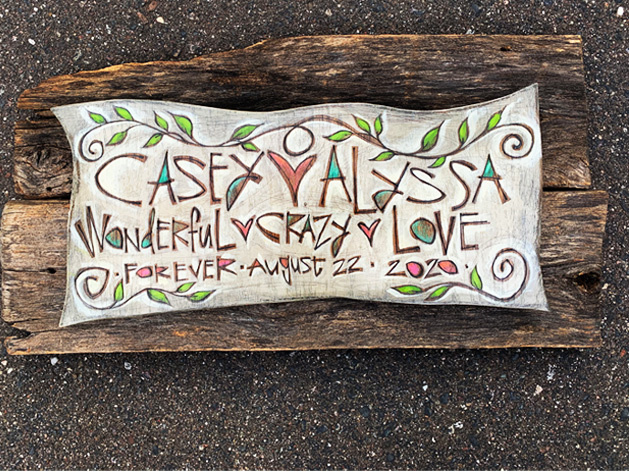 CASEY ALYSSA
WONDERFUL CRAZY LOVE
· FOREVER · AUGUST 22 · 2020 ·